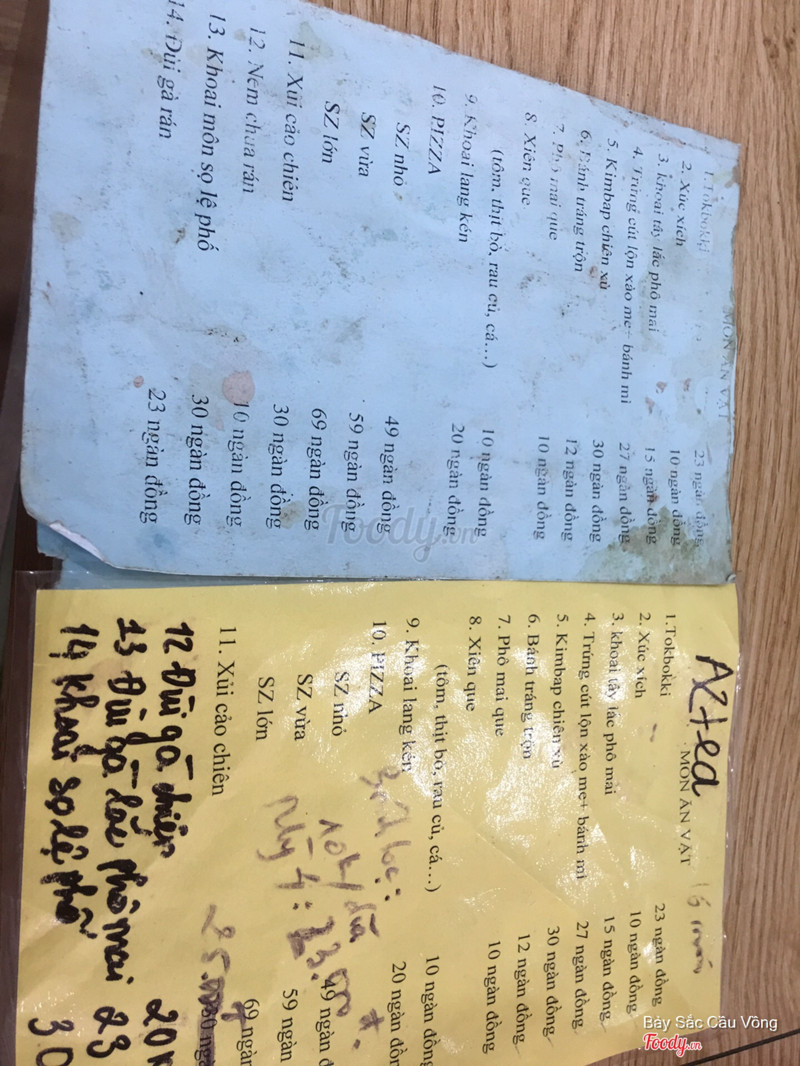 MÓN ĂN VẶT
1. Tokbokki 23 ngàn đồng
2. Xúc xích 10 ngàn đồng
3. khoai tây lắc phô mai 15 ngàn đồng
4. Trứng cút lộn xào me+ bánh mì 27 ngàn đồng
5. Kimbap chiên xù 30 ngàn đồng
6. Bánh tráng trộn 12 ngàn đồng
7. Phô mai que 10 ngàn đồng
8. Xiên que
(tôm, thịt bò, rau củ, cá...) 10 ngàn đồng
9. Khoai lang kén 20 ngàn đồng
10. PIZZA
SZ nhỏ 49 ngàn đồng
SZ vừa 59 ngàn đồng
SZ lớn 69 ngàn đồng
11. Xùi cảo chiên 30 ngàn đồng
12. Nem chua rán 10 ngàn đồng
13. Khoai môn sọ lệ phố 30 ngàn đồng
14. Đùi gà rán 23 ngàn đồng
Aztea
MÓN ĂN VẶT
1.Tokbokki 23 ngàn đồng
2. Xúc xích 10 ngàn đồng
3. khoai tây lắc phô mai 15 ngàn đồng
4. Trứng cút lộn xào me+ bánh mì 27 ngàn đồng
5. Kimbap chiên xù 30 ngàn đồng
6. Bánh tráng trộn 12 ngàn đồng
7. Phô mai que 10 ngàn đồng
8. Xiên que
(tôm, thịt bò, rau củ, cá...) 10 ngàn đồng
9. Khoai lang kén 20 ngàn đồn
10. PIZZA
SZ nhỏ 49 ngàn đ
SZ vừa 59 ngàn
SZ lớn 69 ngàn
11. Xùi cảo chiên
12 Đùi gà chiên 20k
13 Đùi gà lắc phô mai 23
14 khoai sọ lệ phố 30
Foody.vn
Bảy Sắc Cầu Vồng
Foody.vn